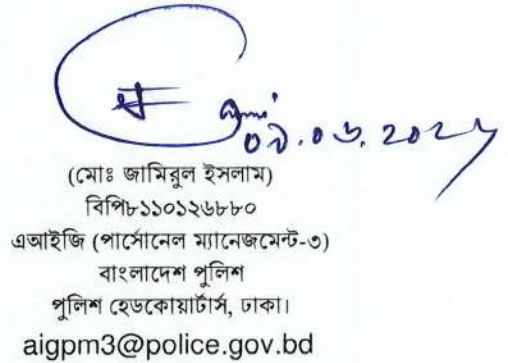 (মোঃ জামিরুল ইসলাম)
বিপি৮১১০১২৬৮৮০
এআইজি (পার্সোনেল ম্যানেজমেন্ট-৩)
বাংলাদেশ পুলিশ
পুলিশ হেডকোয়ার্টার্স, ঢাকা।
aigpm3@police.gov.bd